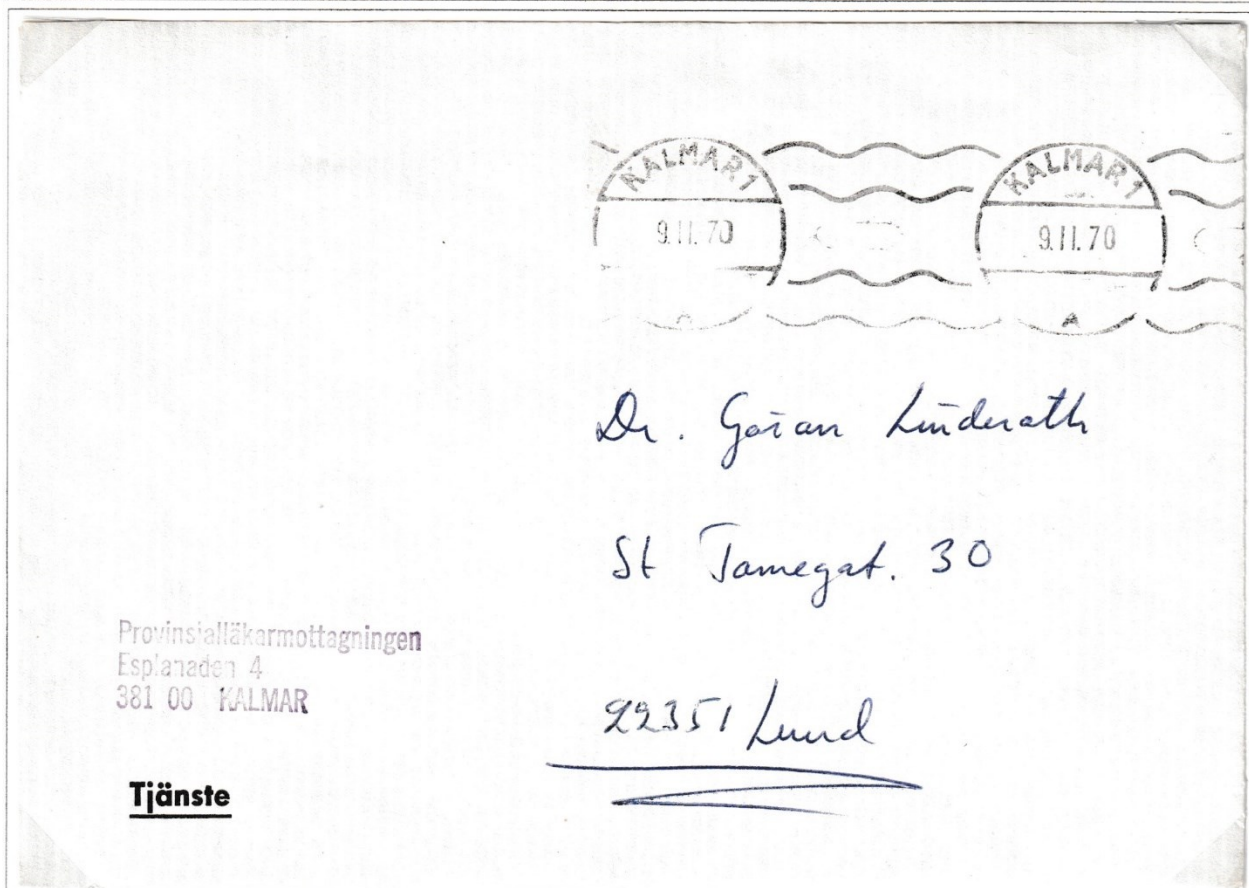 KALMAR 1
9.11.70
A
KALMAR 1
9.11.70
A
Dr. Göran Linderoth
St Tomegat. 30
22351 Lund
Provinsialläkarmottagningen
Esplanaden 4
381 00 KALMAR
Tjänste